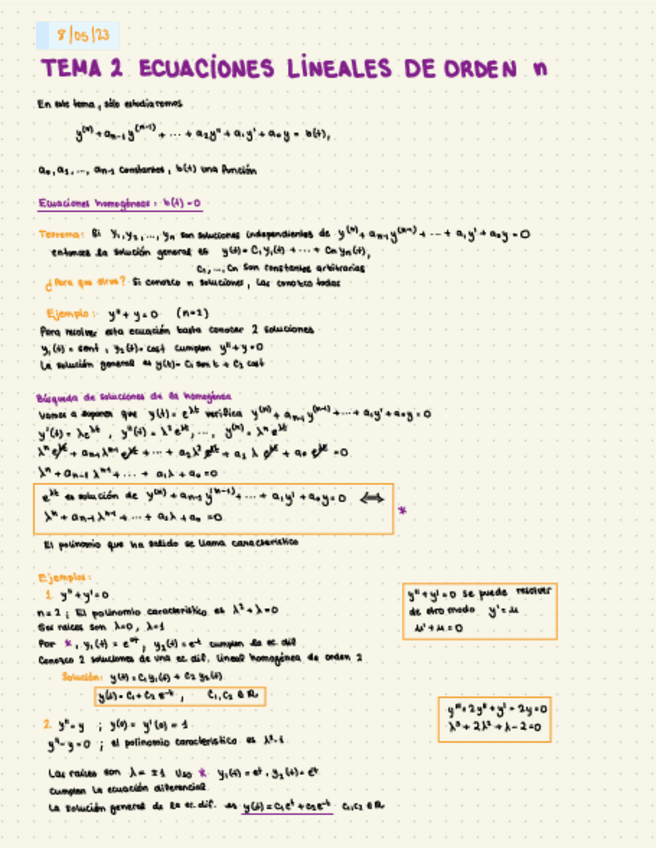 8/05/23
TEMA 2 ECUACIONES LINEALES DE ORDEN n
En este tema, sólo estudiaremos
y⁽ⁿ⁾ + aₙ₋₁y⁽ⁿ⁻¹⁾ + ··· + a₂y" + a₁y' + a₀y = b(t),
a₀, a₁, ..., aₙ₋₁ constantes, b(t) una función
Ecuaciones homogéneas: b(t)=0
Teorema: Si y₁, y₂, ..., yₙ son soluciones independientes de y⁽ⁿ⁾ + aₙ₋₁y⁽ⁿ⁻¹⁾ + ··· + a₁y' + a₀y = 0
entonces la solución general es y(t) = C₁y₁(t) + ··· + Cₙyₙ(t),
C₁, ..., Cₙ son constantes arbitrarias
¿Para que sirve? Si conozco n soluciones, las conozco todas
Ejemplo: y" + y = 0 (n=2)
Para resolver esta ecuación basta conocer 2 soluciones
y₁(t) = sent, y₂(t) = cost cumplen y" + y = 0
La solución general es y(t) = C₁ sen t + C₂ cost
Búsqueda de soluciones de la homogénea
Vamos a suponer que y(t) = e^λt verifica y⁽ⁿ⁾ + aₙ₋₁y⁽ⁿ⁻¹⁾ + ··· + a₁y' + a₀y = 0
y'(t) = λe^λt, y"(t) = λ²e^λt, ..., y⁽ⁿ⁾ = λⁿe^λt
λⁿe^λt + aₙ₋₁λⁿ⁻¹e^λt + ··· + a₂λ²e^λt + a₁λe^λt + a₀e^λt = 0
λⁿ + aₙ₋₁λⁿ⁻¹ + ··· + a₁λ + a₀ = 0
e^λt es solución de y⁽ⁿ⁾ + aₙ₋₁y⁽ⁿ⁻¹⁾ + ··· + a₁y' + a₀y = 0 ⟺
λⁿ + aₙ₋₁λⁿ⁻¹ + ··· + a₁λ + a₀ = 0
*
El polinomio que ha salido se llama característico
Ejemplos:
1. y" + y' = 0
n = 2; El polinomio característico es λ² + λ = 0
Sus raíces son λ=0, λ=1
Por *, y₁(t) = e^0t, y₂(t) = e^-t cumplen la ec. dif
Conozco 2 soluciones de una ec. dif. lineal homogénea de orden 2
Solución: y(t) = C₁y₁(t) + C₂y₂(t)
y(t) = C₁ + C₂e^-t, C₁, C₂ ∈ ℝ
y" + y' = 0 se puede resolver
de otro modo y' = u
u' + u = 0
2. y" = y ; y(0) = y'(0) = 1
y" - y = 0 ; el polinomio característico es λ² - 1
Las raíces son λ = ±1 Uso * y₁(t) = e^t, y₂(t) = e^-t
cumplen la ecuación diferencial
La solución general de la ec. dif. es y(t) = C₁e^t + C₂e^-t C₁, C₂ ∈ ℝ
y"' + 2y" + y' - 2y = 0
λ³ + 2λ² + λ - 2 = 0